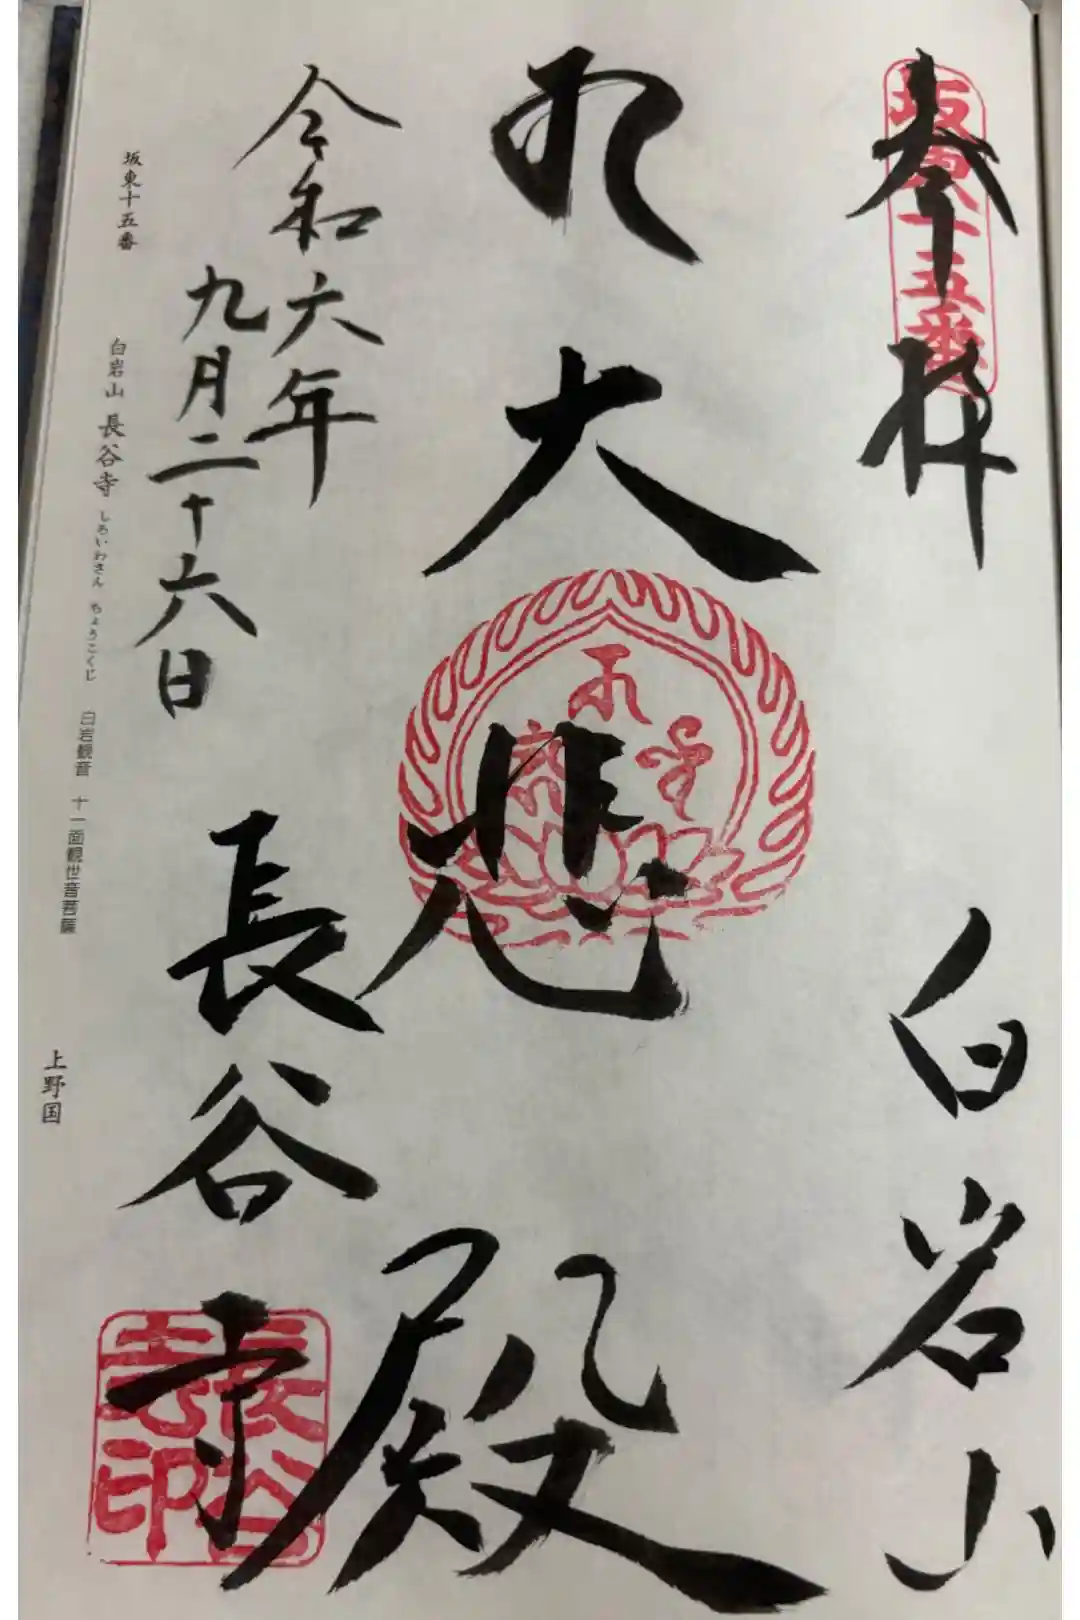 坂東十五番
奉拝
白岩山
大悲殿
令和六年
九月二十六日
長谷寺
長谷寺印
坂東十五番
白岩山 長谷寺 しろいわさん ちょうこくじ 白岩観音 十一面観世音菩薩
上野国